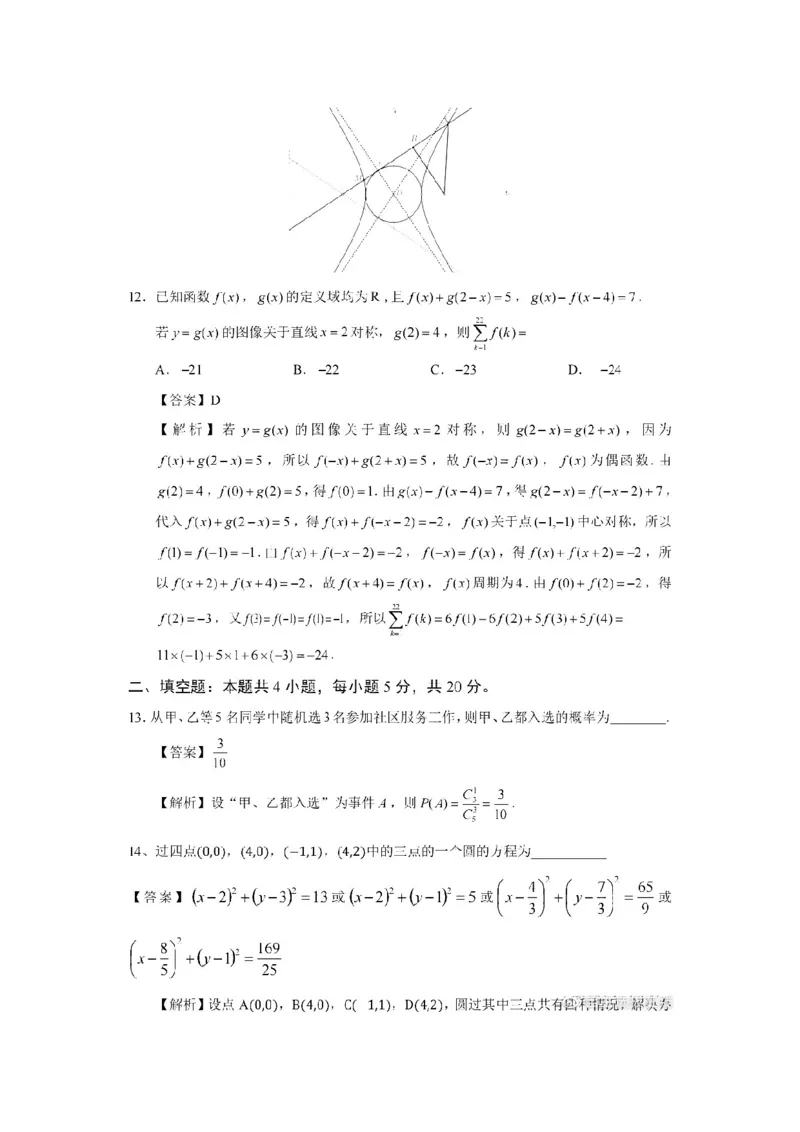 B
M
12．已知函数 f(x)，g(x)的定义域均为R，且 f(x)+g(2−x)=5，g(x)−f(x−4)=7．
若 y=g(x)的图像关于直线 x=2对称，g(2)=4，则 ∑_{k=1}^{22} f(k)=
A．−21 B．−22 C．−23 D． −24
【答案】D
【解析】若 y=g(x) 的图像关于直线 x=2 对称，则 g(2−x)=g(2+x)，因为
f(x)+g(2−x)=5，所以 f(−x)+g(2+x)=5，故 f(−x)=f(x)，f(x)为偶函数．由
g(2)=4，f(0)+g(2)=5，得 f(0)=1．由 g(x)−f(x−4)=7，得 g(2−x)=f(−x−2)+7，
代入 f(x)+g(2−x)=5，得 f(x)+f(−x−2)=−2，f(x)关于点(−1,−1)中心对称，所以
f(1)=f(−1)=−1．由 f(x)+f(−x−2)=−2，f(−x)=f(x)，得 f(x)+f(x+2)=−2，所
以 f(x+2)+f(x+4)=−2，故 f(x+4)=f(x)，f(x)周期为4．由 f(0)+f(2)=−2，得
f(2)=−3，又 f(3)=f(−1)=f(1)=−1，所以 ∑_{k=}^{22} f(k)=6f(1)−6f(2)+5f(3)+5f(4)=
11×(−1)+5×1+6×(−3)=−24．
二、填空题：本题共 4 小题，每小题 5 分，共 20 分。
13．从甲、乙等5名同学中随机选3名参加社区服务工作，则甲、乙都入选的概率为________．
【答案】 3/10
【解析】设“甲、乙都入选”为事件 A，则 P(A)= C_3^1/C_5^3 = 3/10 ．
14、过四点(0,0)，(4,0)，(−1,1)，(4,2)中的三点的一个圆的方程为___________
【答案】(x−2)²+(y−3)²=13 或 (x−2)²+(y−1)²=5 或 (x−4/3)²+(y−7/3)²=65/9 或
(x−8/5)²+(y−1)²=169/25
【解析】设点 A(0,0)，B(4,0)，C( 1,1)，D(4,2)，圆过其中三点共有四种情况，解决办